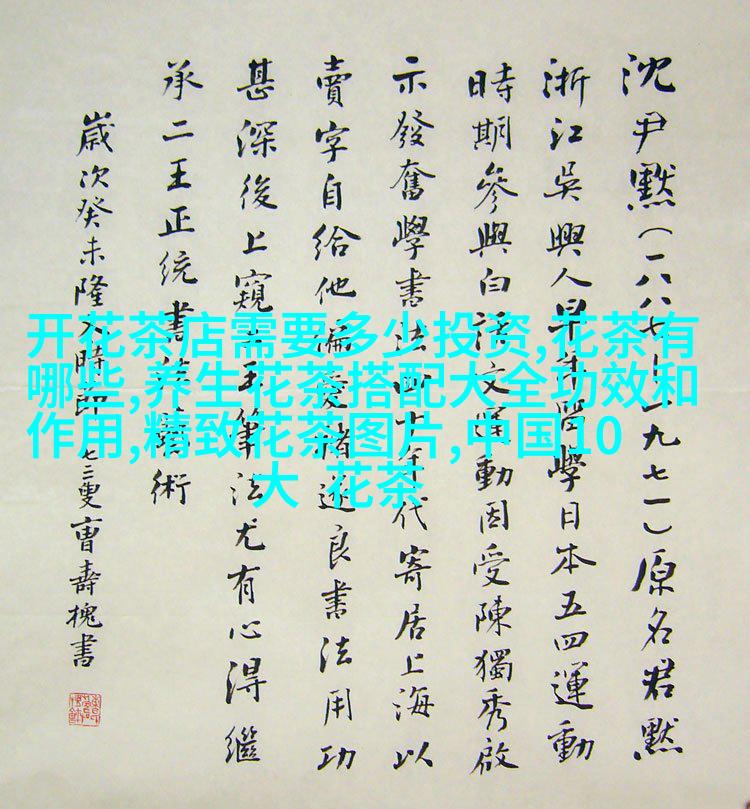 沈尹默(一八八七—一九七一)原名君默
浙江吳興人早年留學日本五四運動
時期參與白話文運動因受陳獨秀啟
示發奮學書法四十年代寄居上海以
賣字自給他偏愛褚遂良書法用功
甚深後上窺二王筆法尤有心得繼
承二王正統書法藝術
歲次癸未隆冬時節曹壽槐書
开花茶店需要多少投资,花茶有
哪些,养生花茶搭配大全功效和
作用,精致花茶图片,中国10
大 花茶